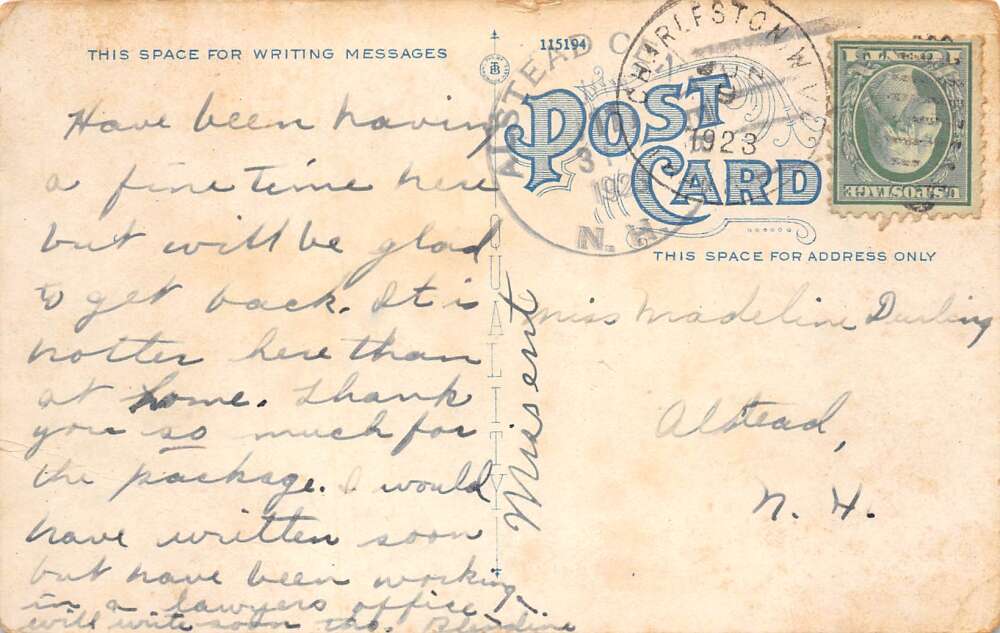 THIS SPACE FOR WRITING MESSAGES
Have been having
a fine time here
but will be glad
to get back. It is
hotter here than
at home. Thank
you so much for
the package. I would
have written soon
but have been working
in a lawyers office.
will write soon tho.
115194
POST
CARD
QUALITY
CHARLESTON, W.
JUN
9
1923
ALSTEAD
N. H.
U.S. POSTAGE
THIS SPACE FOR ADDRESS ONLY
Missent
Miss Madeline
Alstead,
N. H.